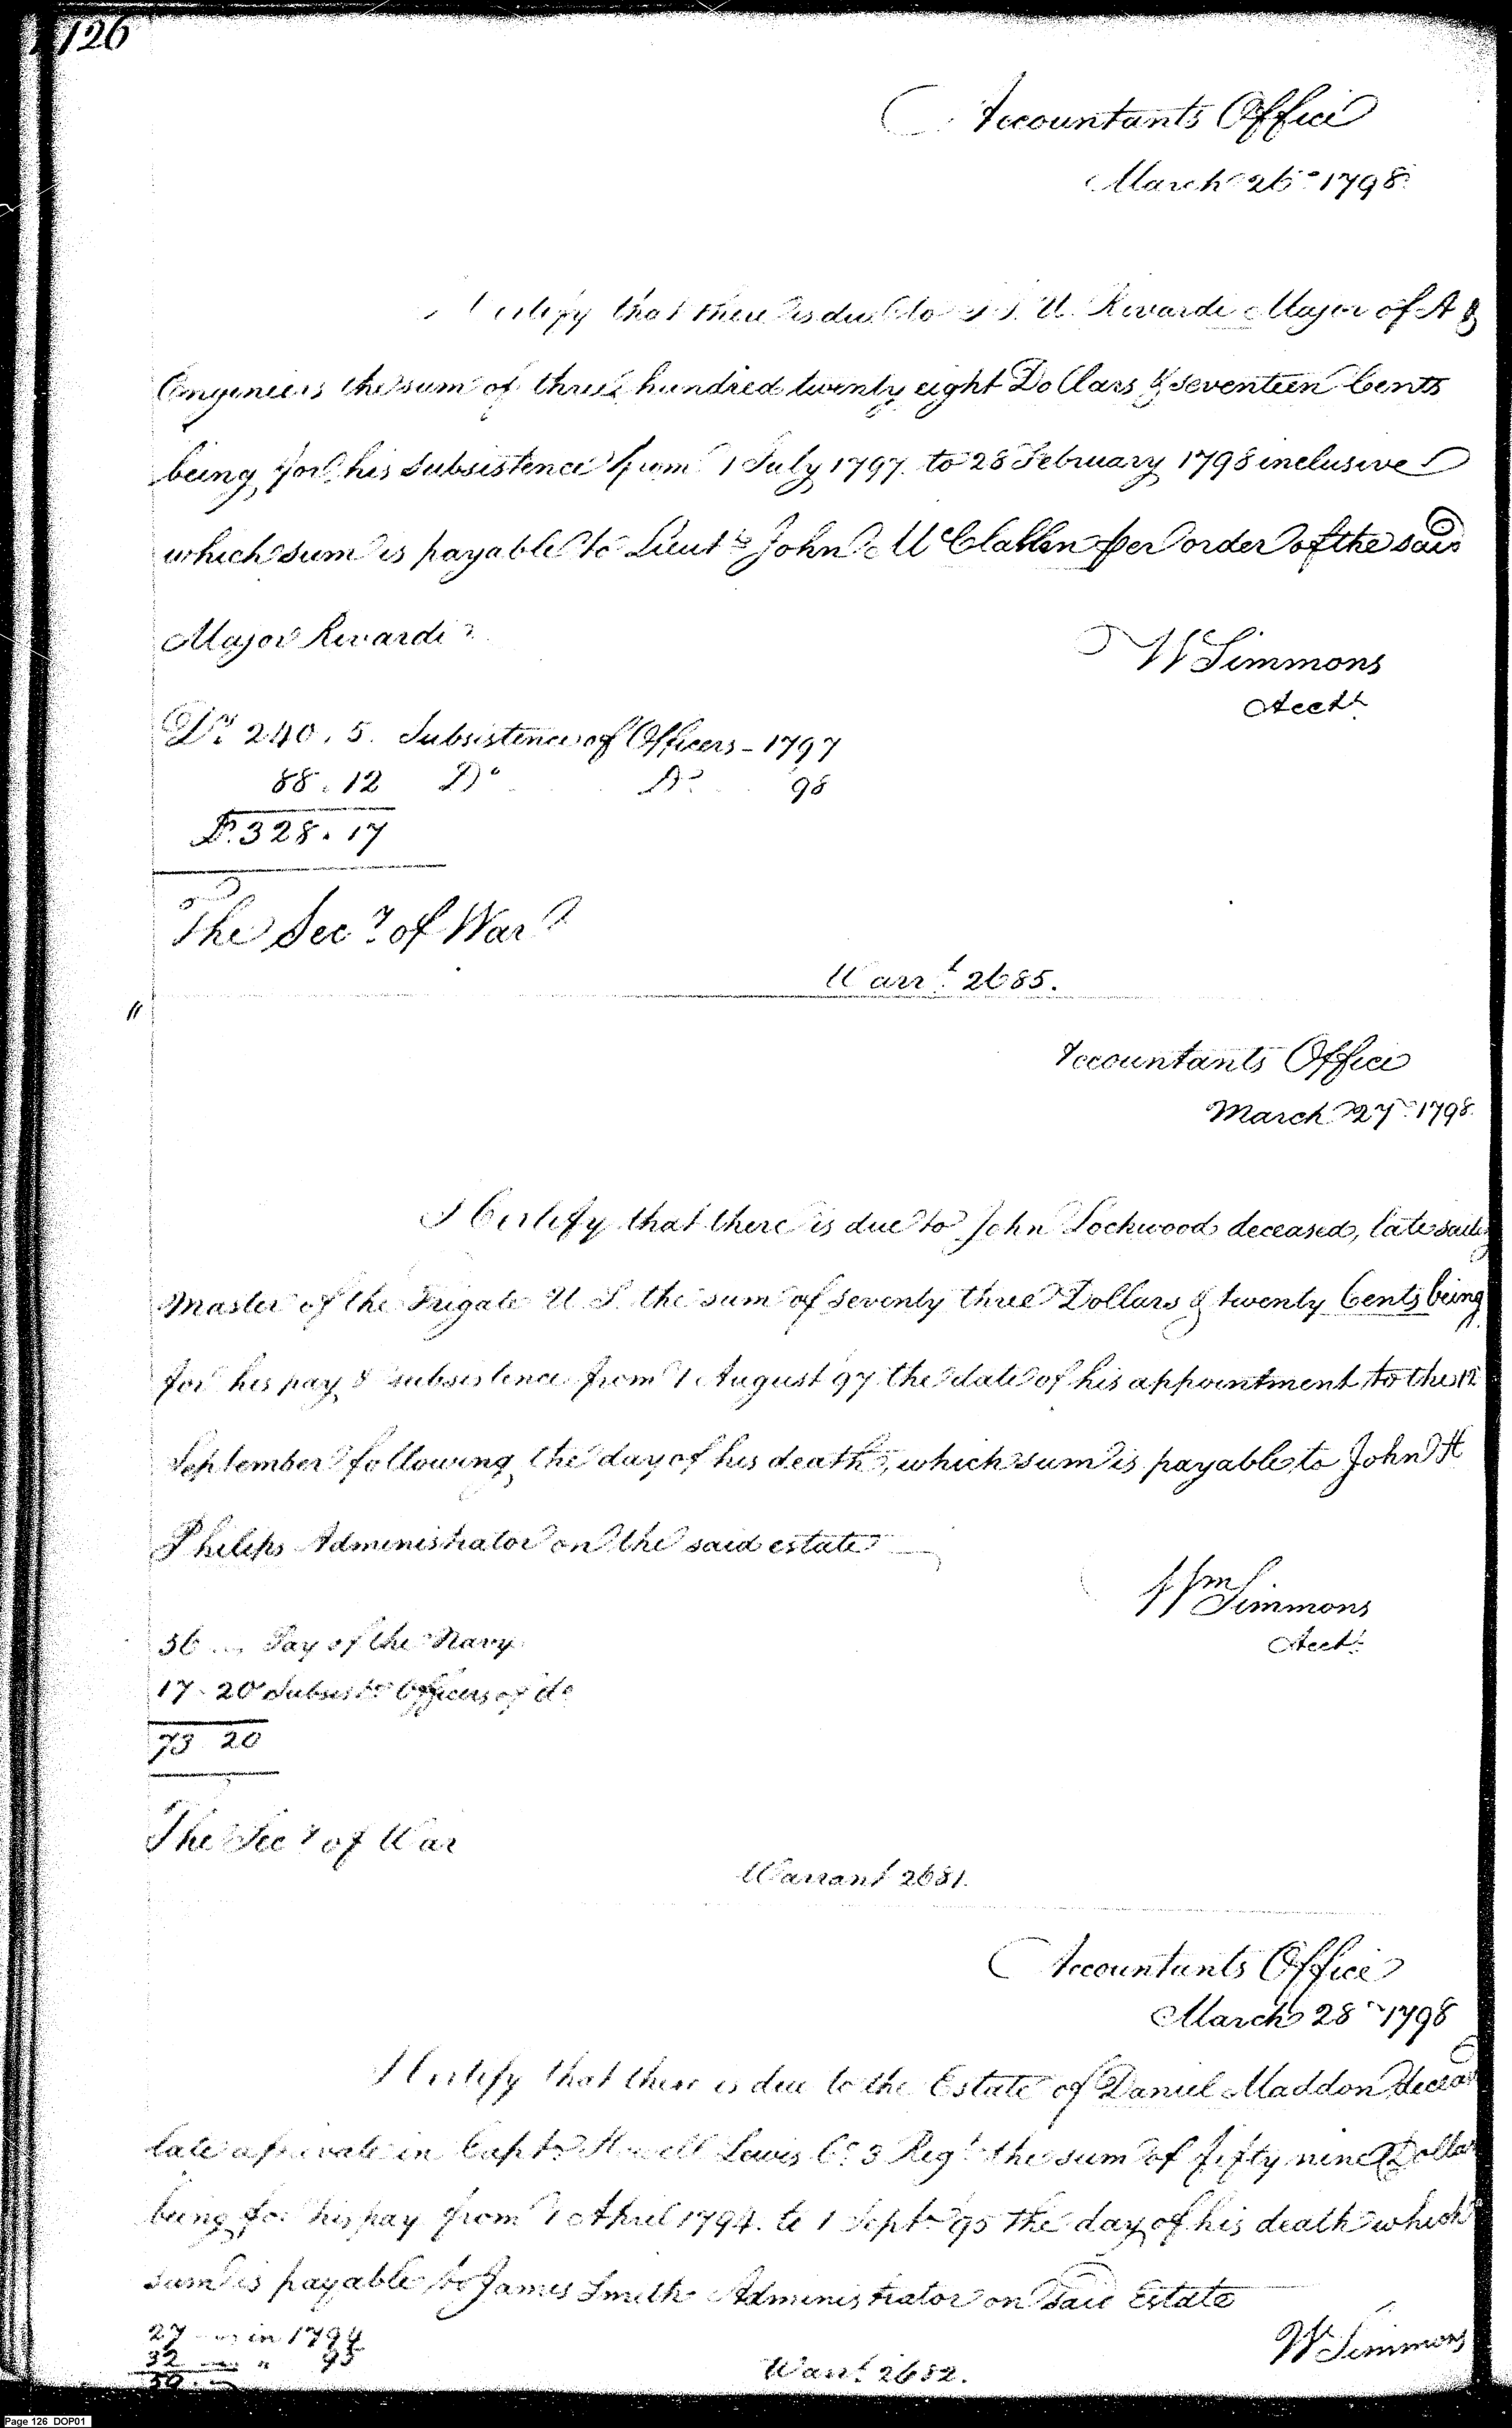 126
Accountants Office
March 26th 1798
I Certify that there is due to J. J. U. Rivardi Major of A &
Engineers the sum of three hundred twenty eight Dollars & seventeen Cents
being for his subsistence from 1 July 1797 to 28 February 1798 inclusive
which sum is payable to Lieut. John McClallen per order of the said
Major Rivardi
W Simmons
Acctt
Drs 240.5. Subsistence of Officers - 1797
88.12 Do Do 98
D.328.17
The Secy of War
Warrt. 2685.
"
Accountants Office
March 27th 1798
I Certify that there is due to John Lockwood deceased, late sailg
Master of the Frigate U. S. the sum of seventy three Dollars & twenty Cents being
for his pay & subsistence from 1 August 97 the date of his appointment to the 12
September following the day of his death, which sum is payable to John H
Philips Administrator on the said estate
Wm Simmons
Acctt
56 .. Pay of the Navy
17.20 Subsistce Officers of do
73 20
The Secy of War
Warrant 2681.
Accountants Office
March 28th 1798
I Certify that there is due to the Estate of Daniel Maddon deceasd
late a private in Captn Howell Lewis Co. 3 Regt the sum of fifty nine Dollars
being for his pay from 1 April 1794. to 1 Septr 95 the day of his death which
sum is payable to James Smith Administrator on said Estate
27 in 1794
32 " 95
59
W Simmons
Warrt. 2682.
Page 126 DOP01